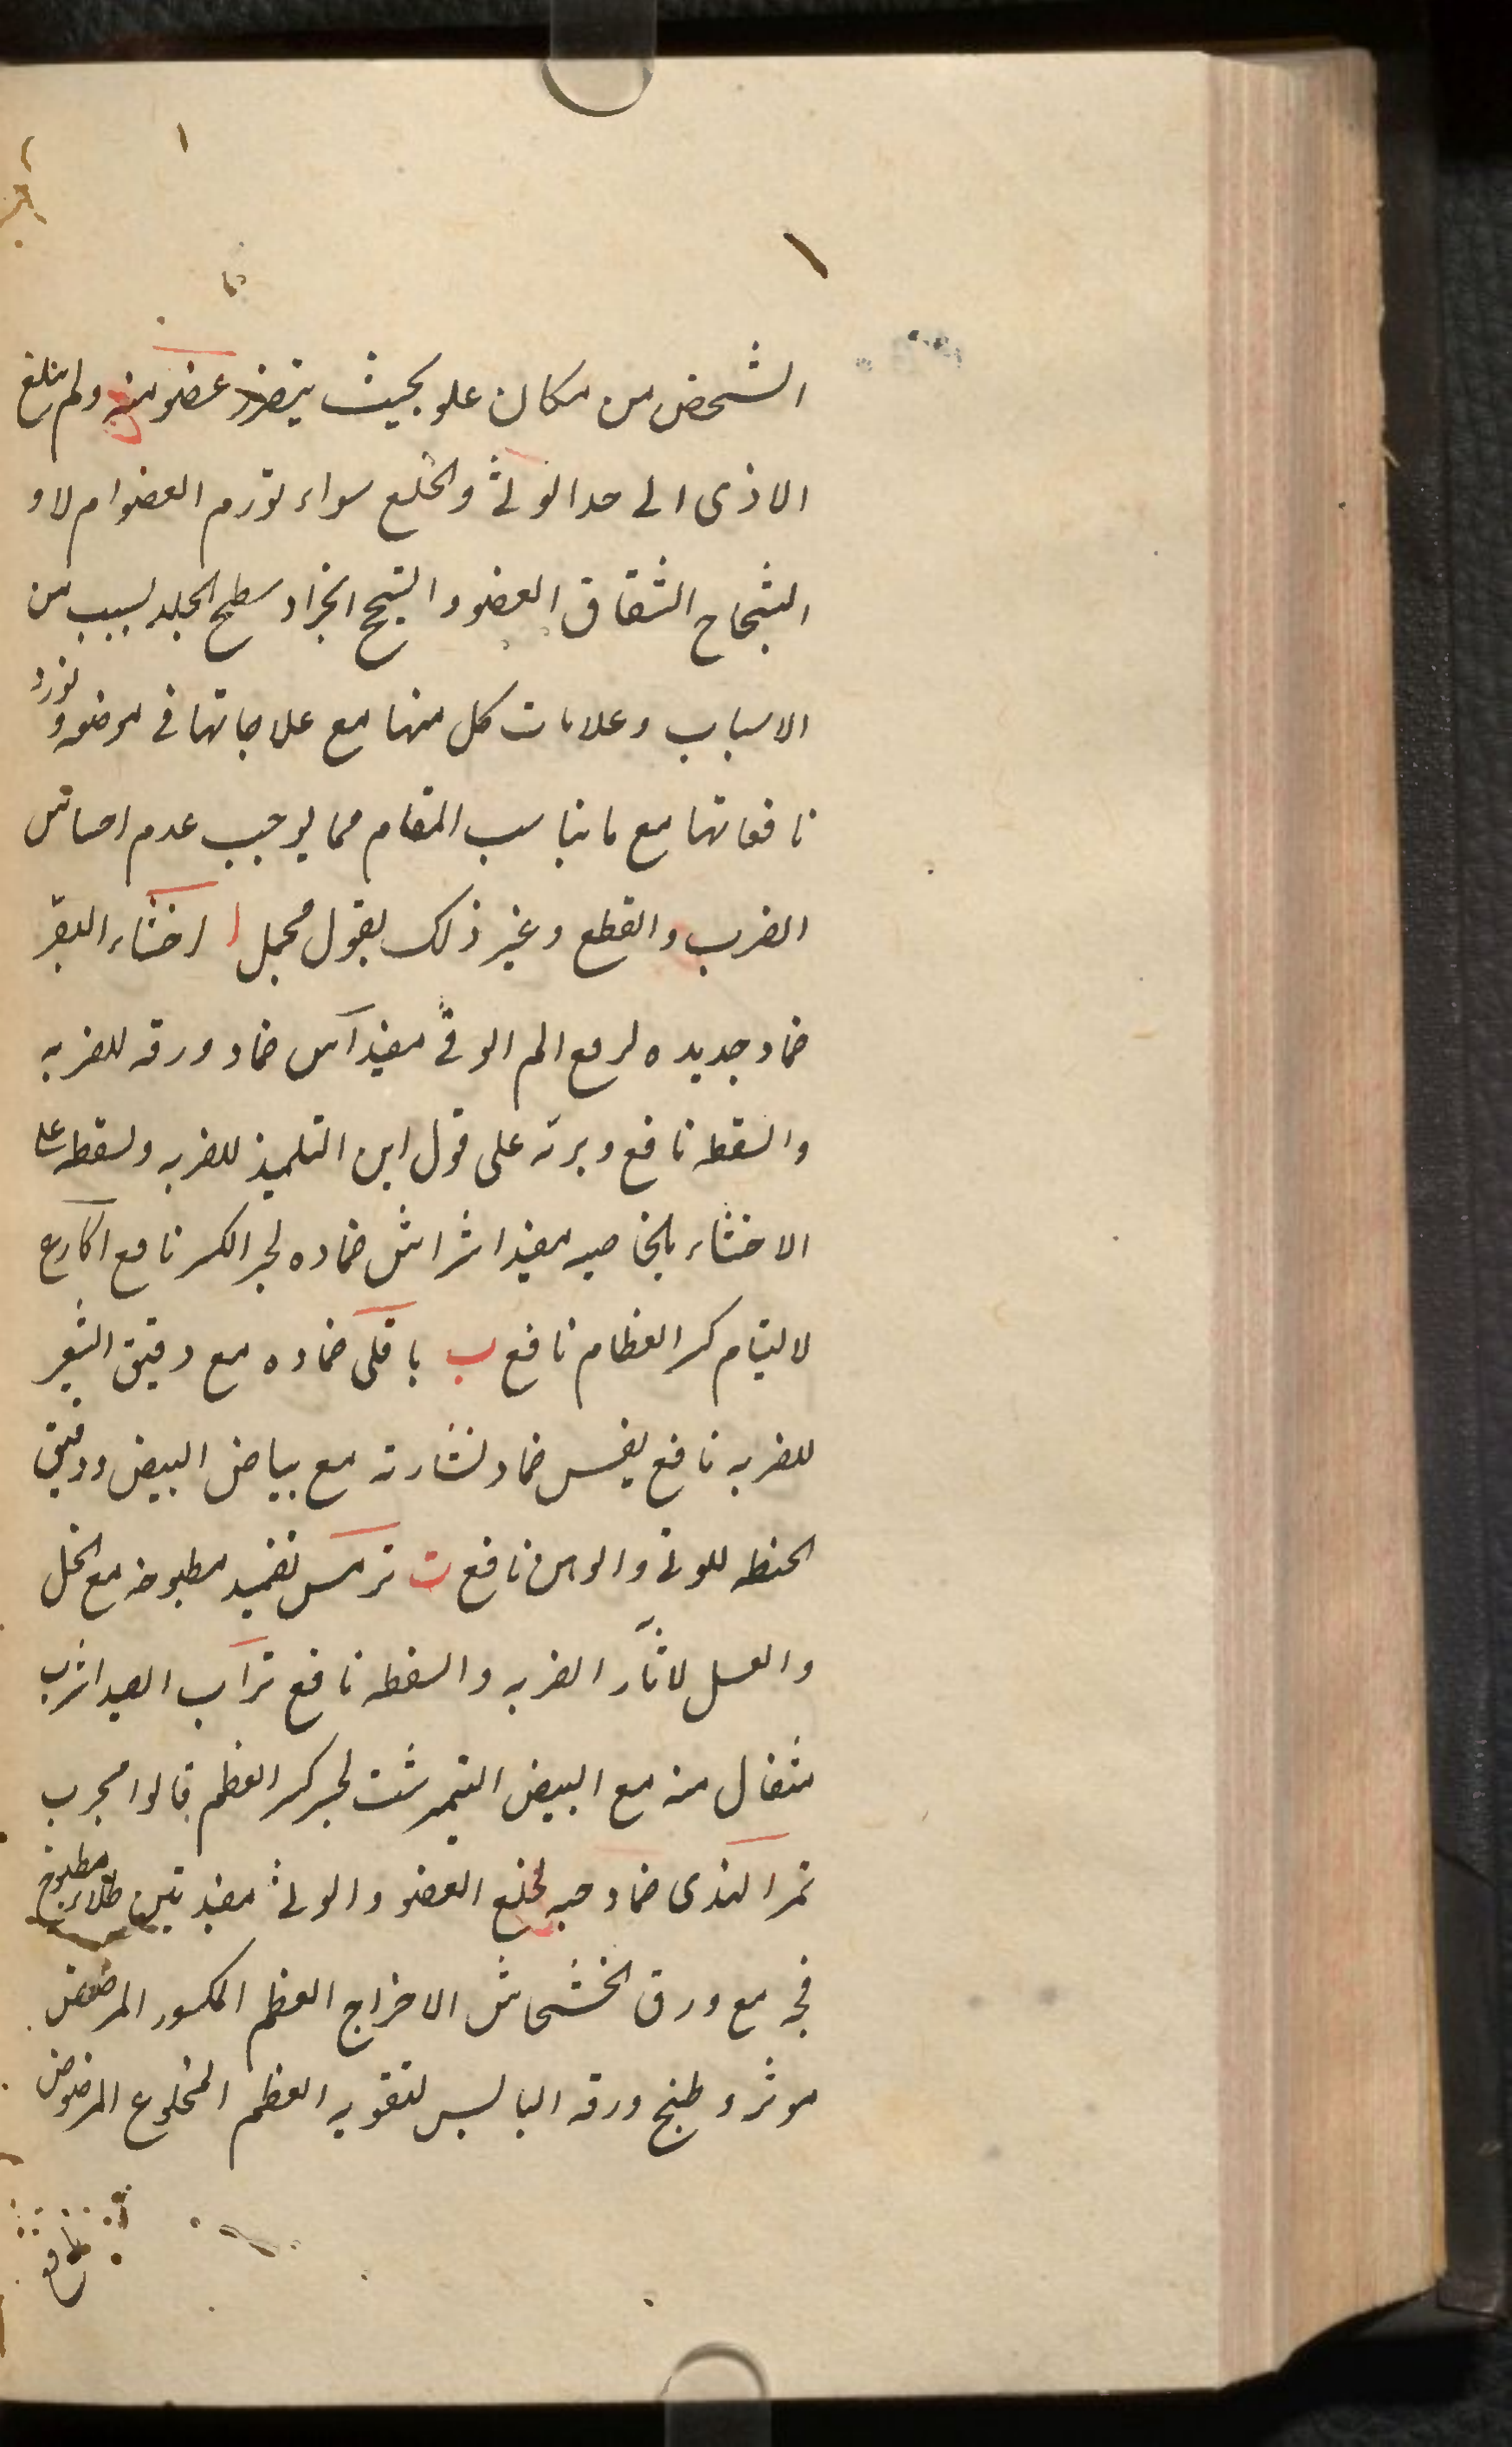 الشخص من مكان علو بحيث يتضرر عضو منه ولم يبلغ
الاذى الى حد الوثى والخلع سواء تورم العضو ام لا و
الشجاج انشقاق العضو والسحج انجراد سطح الجلد بسبب من
الاسباب وعلامات كل منها مع علاجاتها فى موضعه ونورد
نافعاتها مع ما يناسب المقام مما يوجب عدم احساس
الضرب والقطع وغير ذلك بقول مجمل ا اخثاء البقر
ضماد جديده لرفع الم الوثى مفيد آس ضماد ورقه للضربه
والسقطه نافع وبرته على قول ابن التلميذ للضربه ولسقطه على
الاحشاء بالخاصيه مفيد اشراش ضماده لجبر الكسر نافع اكارع
لاليتام كسر العظام نافع ب باقلى ضماده مع دقيق الشعير
للضربه نافع بقس ضماد نشارته مع بياض البيض ودقيق
الحنطه للوثى والوهن نافع ت ترمس تضميد مطبوخه مع الخل
والعسل لاثآر الضربه والسقطه نافع تراب الصيد اشرب
مثقال منه مع البيض النيمرشت لجبر كسر العظم قالوا مجرب
تمر الهندى ضماد حبه لخلع العضو والوثى مفيد تين طلاء مطبوخ
فجه مع ورق الخشخاش الاخراج العظم المكسور المرضض
موثر وطبخ ورقه اليابس لتقويه العظم المخلوع المرضوض